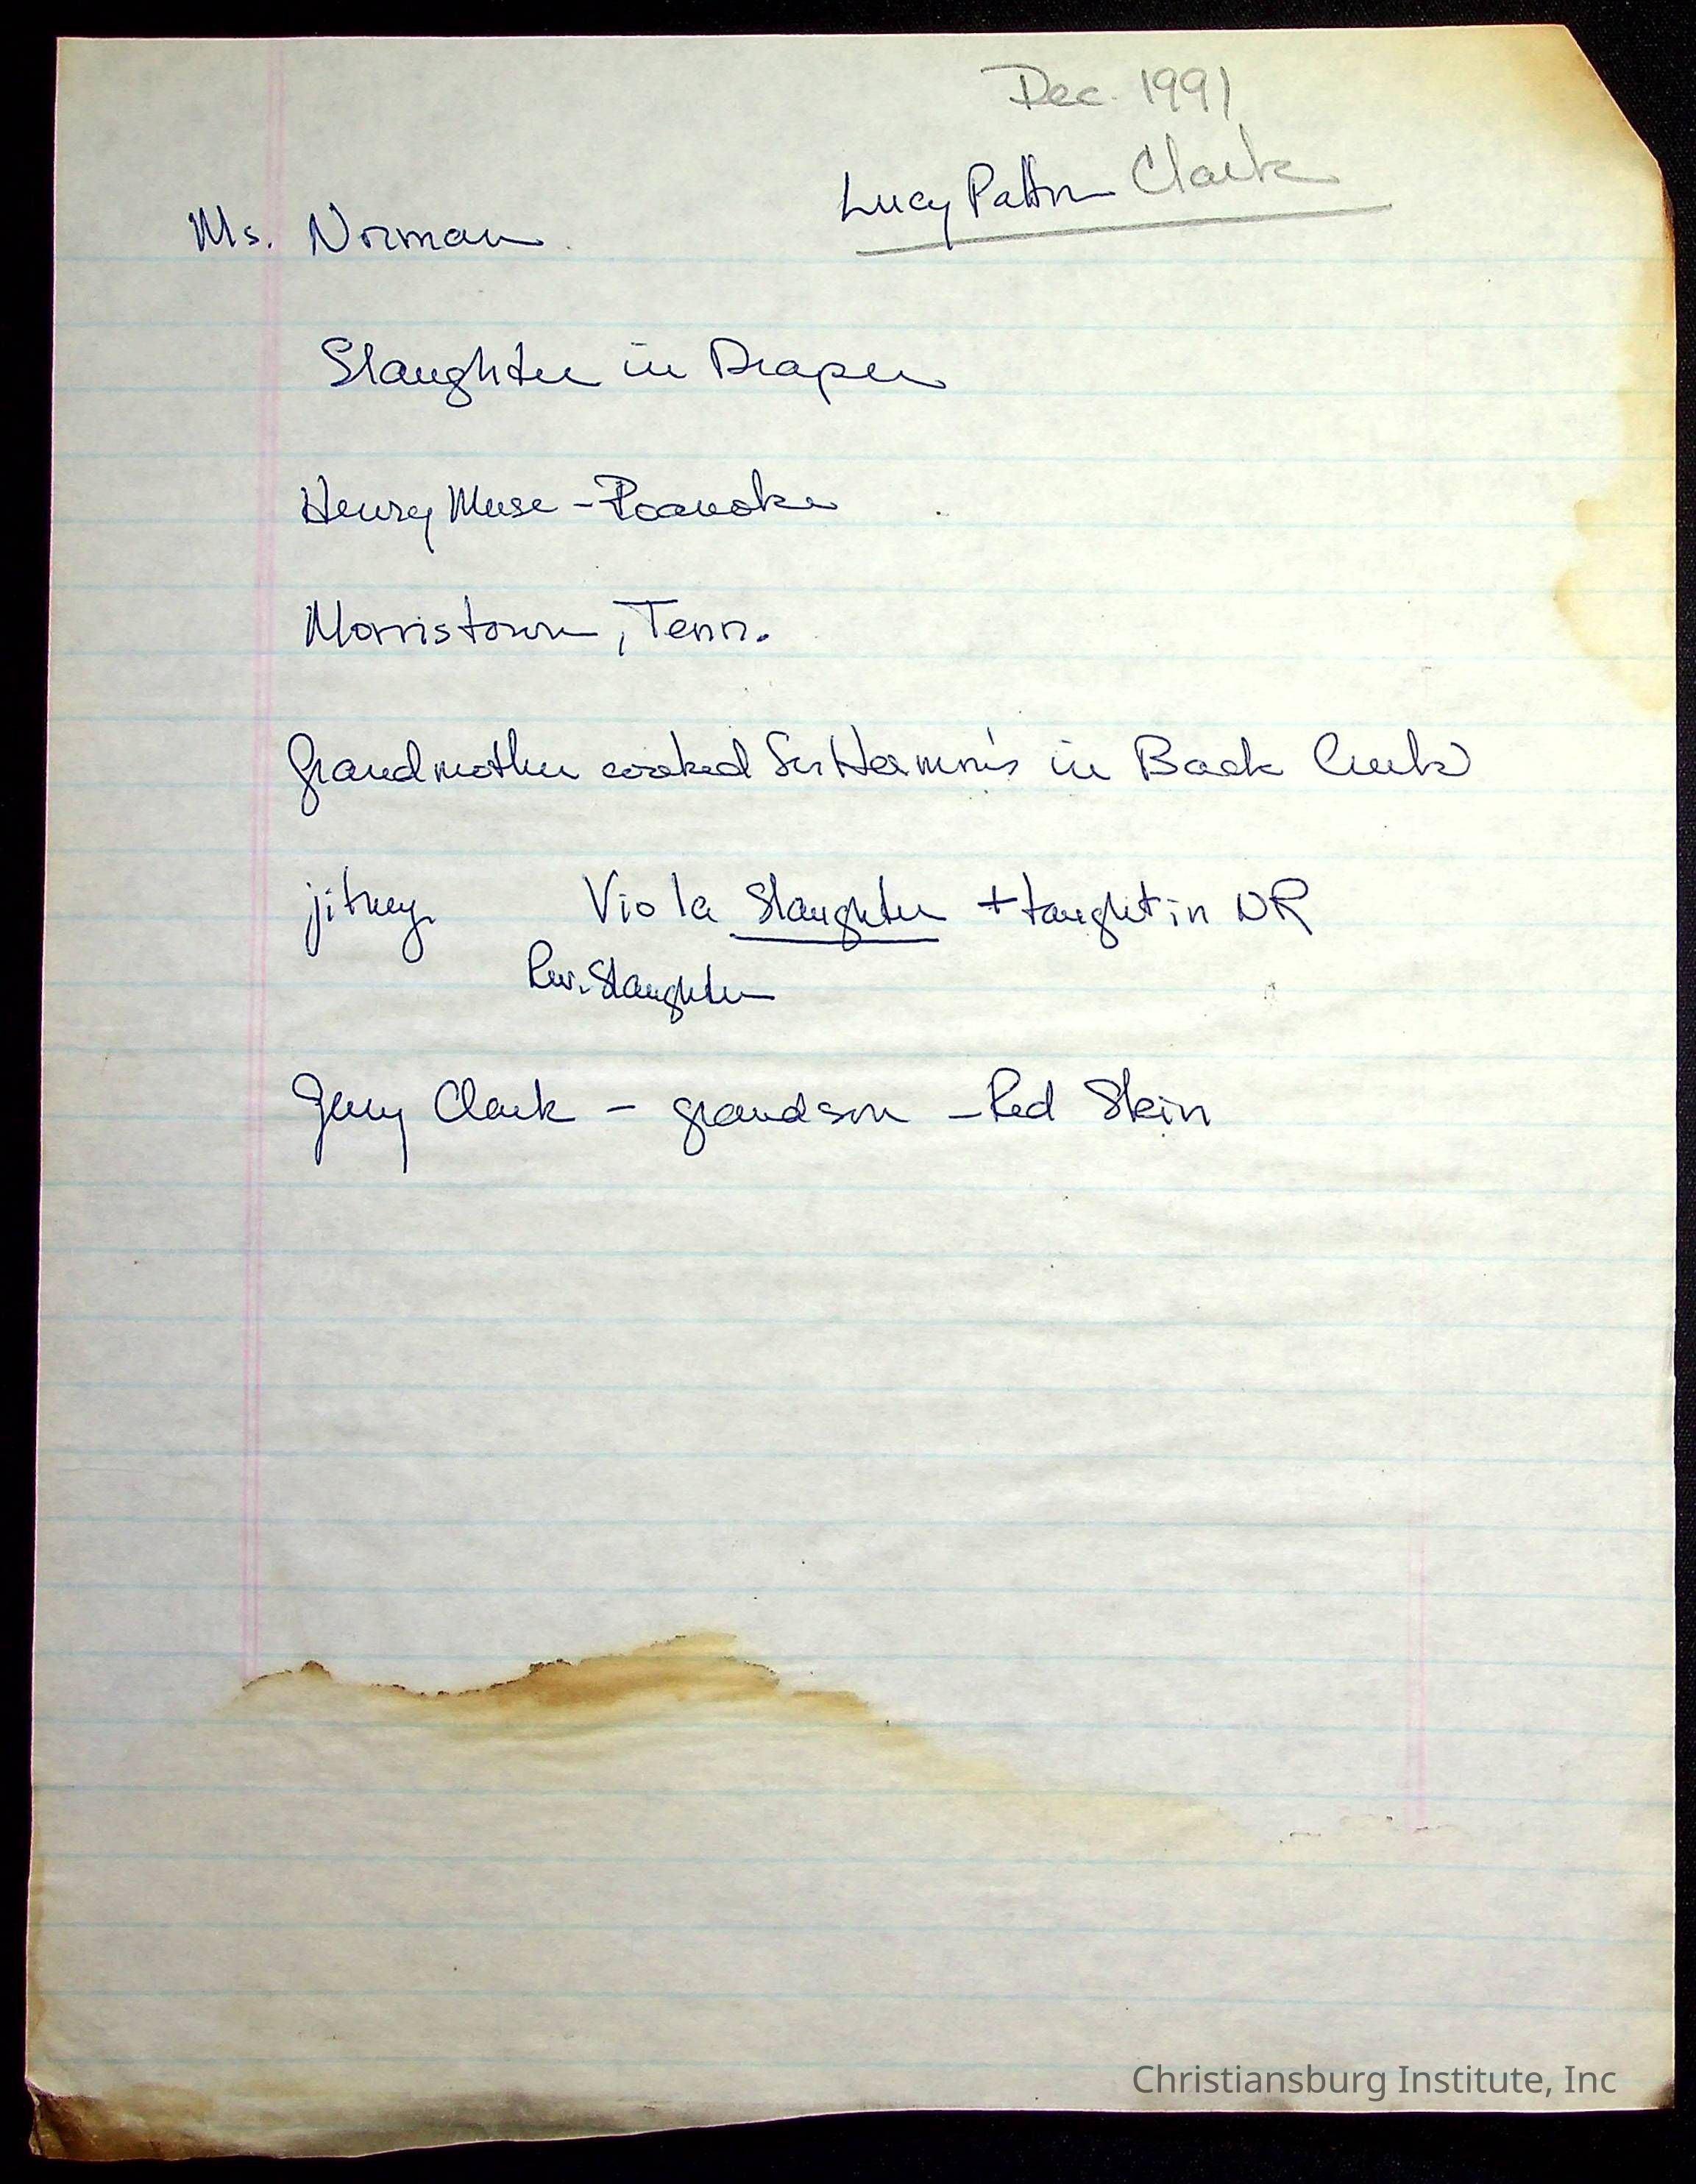 Dec. 1991
Lucy Patton Clark
Ms. Norman
Slaughter in Draper
Henry Muse - Roanoke
Morristown, Tenn.
Grandmother cooked for in Back Creek
jitney Viola Slaughter + taught in NR
Rev. Slaughter
Jerry Clark - grandson - Red Skin
Christiansburg Institute, Inc